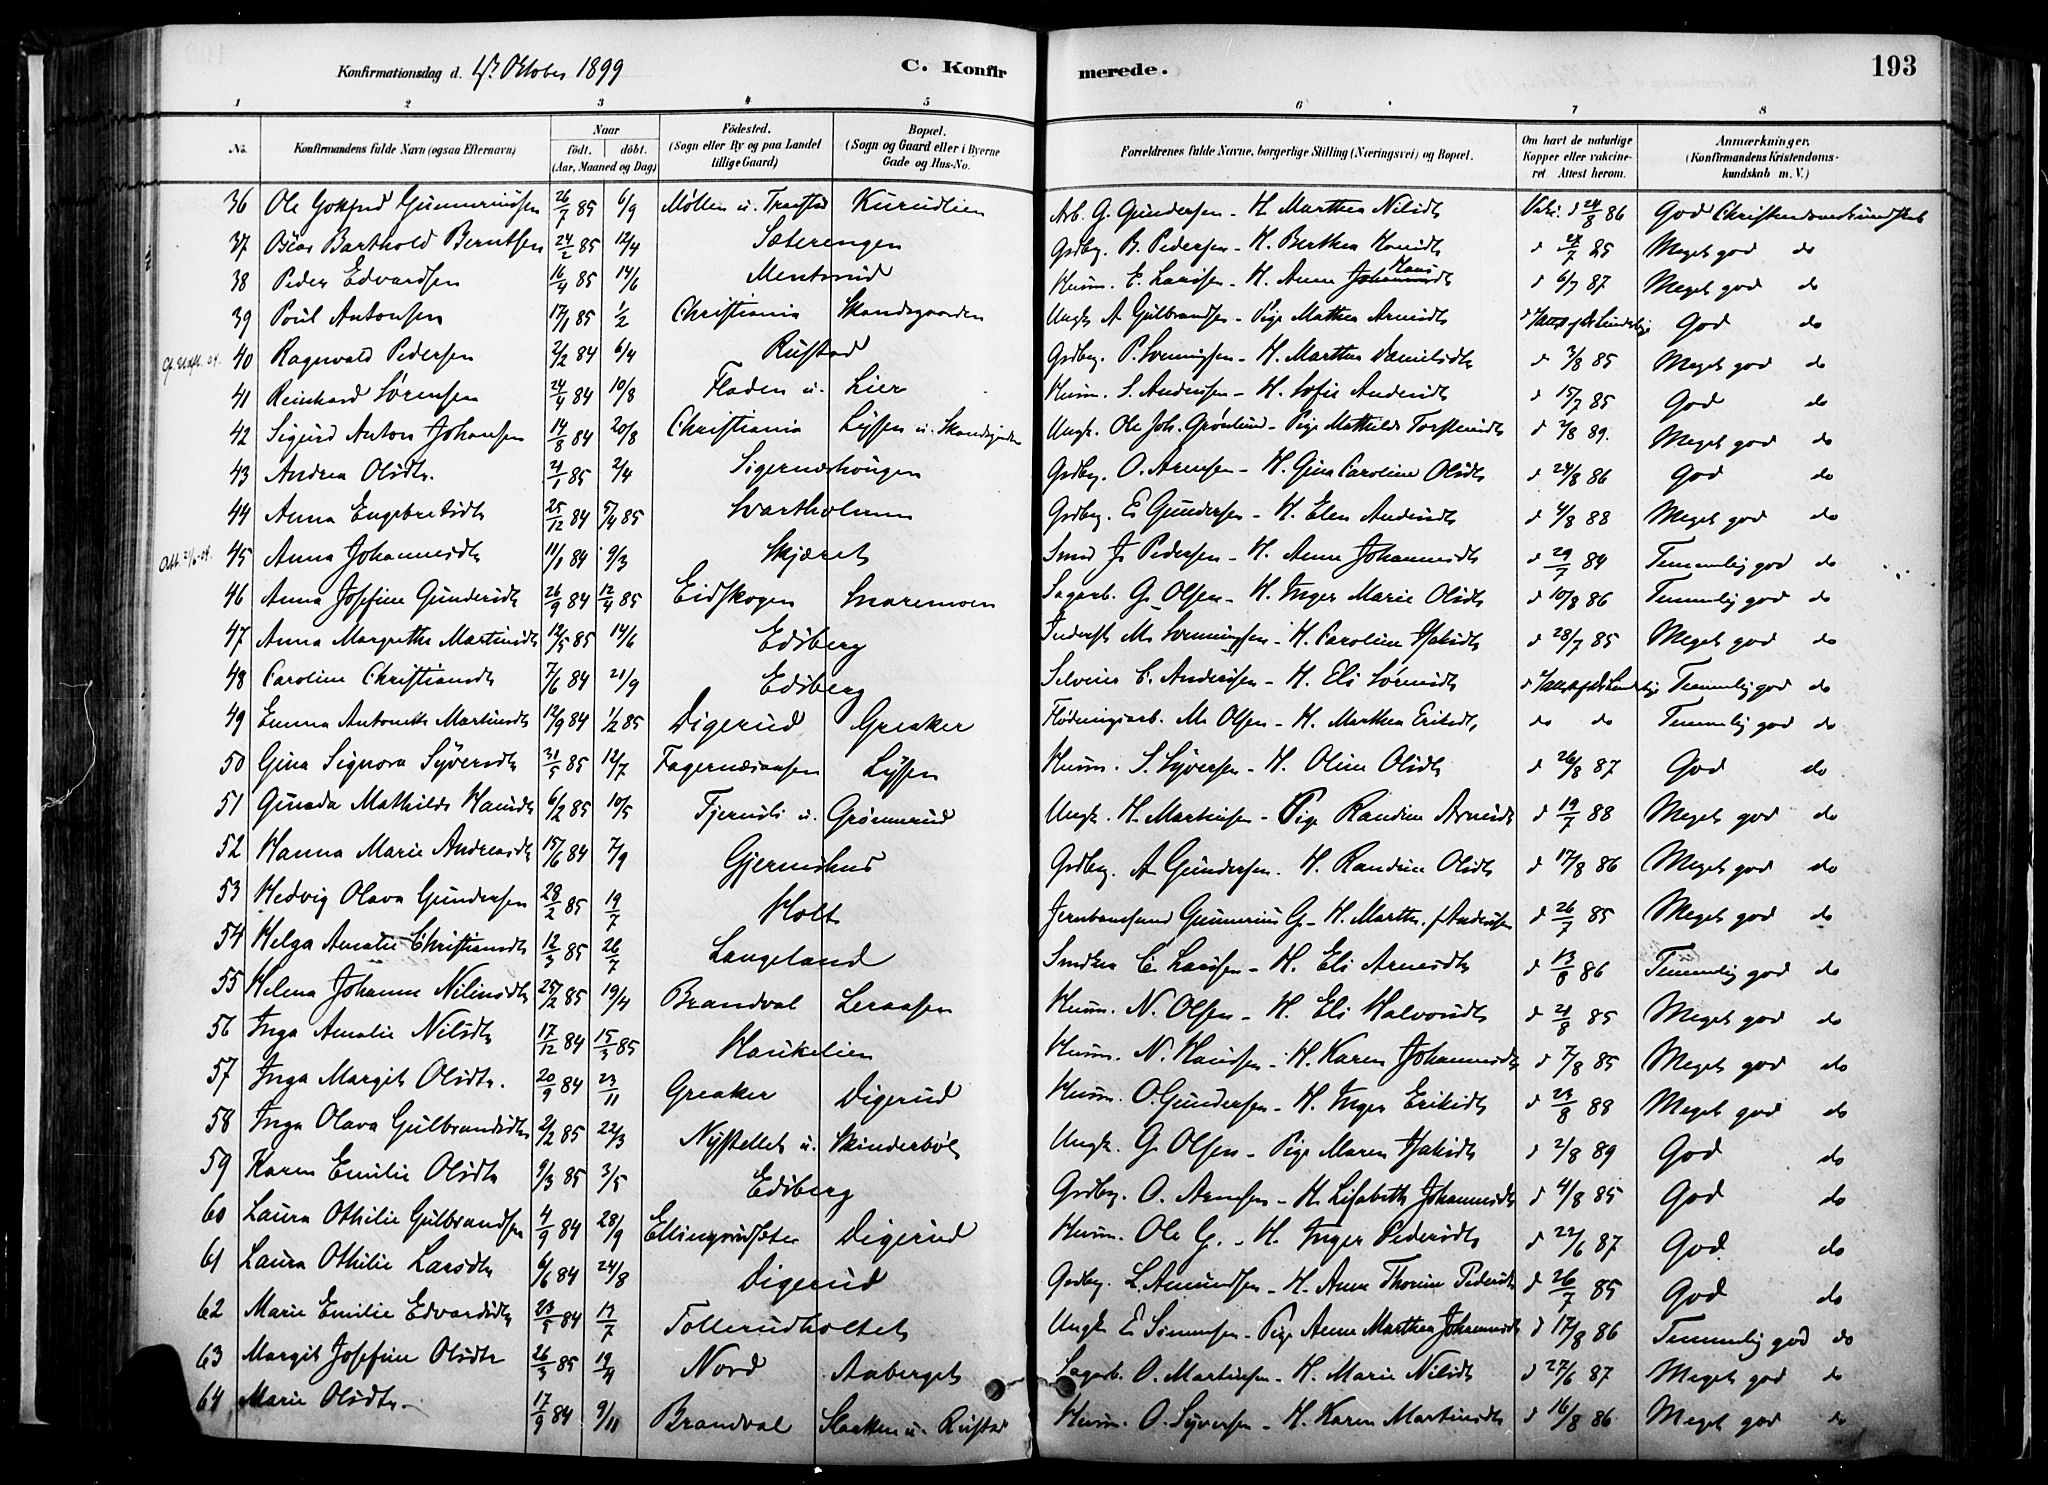 Konfirmationsdag d. Oktober 1899 C. Konfir merede. 193
1 2 3 4 5 6 7 8
No. Konfirmandens fulde Navn (ogsaa Efternavn) Naar födt. döbt. (Aar, Maaned og Dag) Födested. (Sogn eller By og paa Landet tillige Gaard) Bopæl. (Sogn og Gaard eller i Byerne Gade og Hus-No. Forældrenes fulde Navne, borgerlige Stilling (Næringsvei) og Bopæl. Om havt de naturlige Kopper eller vakcineret Attest herom. Anmærkninger. (Konfirmandens Kristendomskundskab m. V.)
36 Ole Gunneriussen 26/7 85 6/9 Møllen u. Kurudlien Arb. G. Gundersen - H. Marthea Nilsdt 24/8 86 God Christendomskundskab
37 Barthold Berntsen 24/2 85 12/4 Sæterengen Gdbrg. B. Pedersen - H. Berthea 85 Meget god do
38 Peder Edvardsen 16/4 85 14/6 Mentsrud Husm. E. Larssen - H. Anne Hans d 6/7 87 Meget god do
39 Poul Antonsen 17/1 85 1/2 Christiania Skandsgaarden Ungk. A Gulbrandsen - Pige Mathea Arnesdt God do
40 Ragnvald Pedersen 2/2 84 6/4 Rustad Gdbrg. P. Svenningsen - H. Marthea Danielsdt d 3/8 85 Meget god do
41 Reinhard Sørensen 24/4 84 10/8 Fladen u. Lier Husm. S. Andersen - H. Sofie Andersdt d 15/7 85 God do
42 Sigurd Anton Johansen 14/8 84 20/8 Christiania Lyssen u. Ungk. Ole Joh. Grønlund - Pige Mathilde d 2/8 89. Meget god do
43 Andrea Olsdtr. 21/1 85 2/4 Sigernæshougen Gdbrg. O. Arnesen - H. Gina Caroline Olsdt d 24/8 86 God do
44 Anna Engebretsdt 25/12 84 85 Svartholmen Gdbrg. E. Gundersen - H. Elen Andersdt d 4/8 88 Meget god do
45 Anna Johannesdt 11/1 84 9/3 Skjæret Smed J. Pedersen - H. Anne Johannesdt d 29/7 84 Temmelig god do
46 Anna Josefine Gundersdt 26/9 84 12/4 85 Eidskogen Snaremoen Sagarb. G. Olsen - H. Inger Marie Olsdt d 10/8 86 Temmelig god do
47 Anna Margrethe Martinsdt 12/5 85 14/6 Edsberg Inderst M. Svenningsen - H. Caroline Isaksdt d 28/7 85 Meget god do
48 Caroline Christiansdt 7/6 84 21/9 Edsberg Selveier C. Anderssen - H. Eli Sørensdt Temmelig god do
49 Emma Antonette Martinsdt 12/9 84 1/2 85 Digerud Greaker Flødningsarb. M. Olsen - H. Marthea Eriksdt do do Temmelig god do
50 Gina Signora Syversdt 31/5 85 12/7 Fagernæsaasen Lyssen Husm. S. Syversen - H. Oline Olsdt d 26/8 87 God do
51 Gunda Mathilde Hansdt 6/2 85 10/5 Tjernsli u. Grønnerud Ungk. H. Martinsen - Pige Randine Arnesdt d 19/7 88 Meget god do
52 Hanna Marie Andreasdt 15/6 84 7/9 Gjerneshus Gdbrg. A Gundersen - H. Randine Olsdt d 17/8 86 Meget god do
53 Hedvig Olava Gundersen 28/2 85 19/7 Holt Jernbanemand Gunnerius G. - H. Marthe f. Andersen d 26/7 85 Meget god do
54 Helga Amalie Christiansdt 12/3 85 26/7 Langeland C. Larssen - H. Eli Arnesdt d 13/8 86 Temmelig god do
55 Helena Johanne Nilsdt 25/2 85 19/4 Brandval Leraasen Husm. N. Olsen - H. Eli Halvorsdt d 21/8 85 Meget god do
56 Inga Amalie Nilsdt 17/12 84 15/3 85 Haukelien Husm. N. Hanssen - H. Karen Johannesdt d 7/8 85 Meget god do
57 Inga Margit Olsdtr. 20/9 84 23/11 Greaker Digerud Husm. O. Gundersen - H. Inger Eriksdt d 88 Meget god do
58 Inga Olava Gulbrandsdtr 2/2 85 22/3 Nystellet u. Skinderbøl Ungk. G. Olsen - Pige Maren Isaksdt d 2/8 89 God do
59 Karen Emilie Olsdt 9/3 85 3/5 Edsberg Gdbrg. O. Arnesen - H. Lisabeth Johannesdt d 4/8 85 God do
60 Laura Othilie Gulbrandsen 4/9 84 28/9 Ellingrudsæter Digerud Husm. Ole G. - H. Inger Pedersdt d 22/6 87 God do
61 Laura Othilie Larsdt 6/6 84 24/8 Digerud Gdbrg. L. Amundsen - H. Anne Thorine Pedersdt d 26/7 85 God do
62 Marie Emilie Edvardsdt 23/5 84 13/7 Tollerudholtet Ungk. E. Simensen - Pige Anne Marthea Johannesdt d 17/8 86 Temmelig god do
63 Margit Josefine Olsdtr 26/3 85 19/4 Nord Aaberget Sagarb. O. Martinsen - H. Marie Nilsdt d 27/6 87 Meget god do
64 Marie Olsdtr. 17/9 84 9/11 Brandval u. Rustad Husm. O. Syversen - H. Karen Martinsdt d 16/8 86 Meget god do